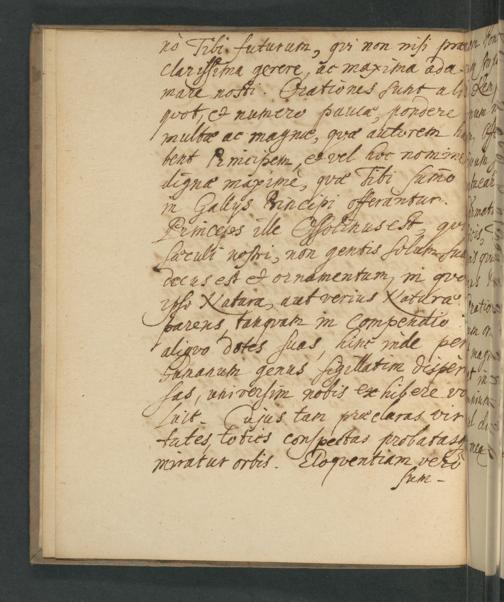 nò Tibi futurum, qvi non nisi præ
clarissima gerere, ac maxima ada-
mare nosti. Orationes sunt ali
qvot, et numero paucæ, pondere
multæ ac magnæ, qvæ autorem ha
bent Principem, et vel hoc nomine
dignæ maximè, qvæ Tibi
in Gallijs Principi offerantur.
Princeps ille est, qvi
sæculi nostri, non gentis solum suæ
decus est et ornamentum, in qvo
ipsa Natura, aut verius Naturæ
parens, tanqvam in compendio
aliqvo dotes suas, hinc inde per
humanum genus, sigillatim disper
sas, universim nobis exhibere vo
luit. Cujus tam præclaras vir
tutes, toties conspectas probatasq
miratur orbis. Eloqventiam verò
sum-